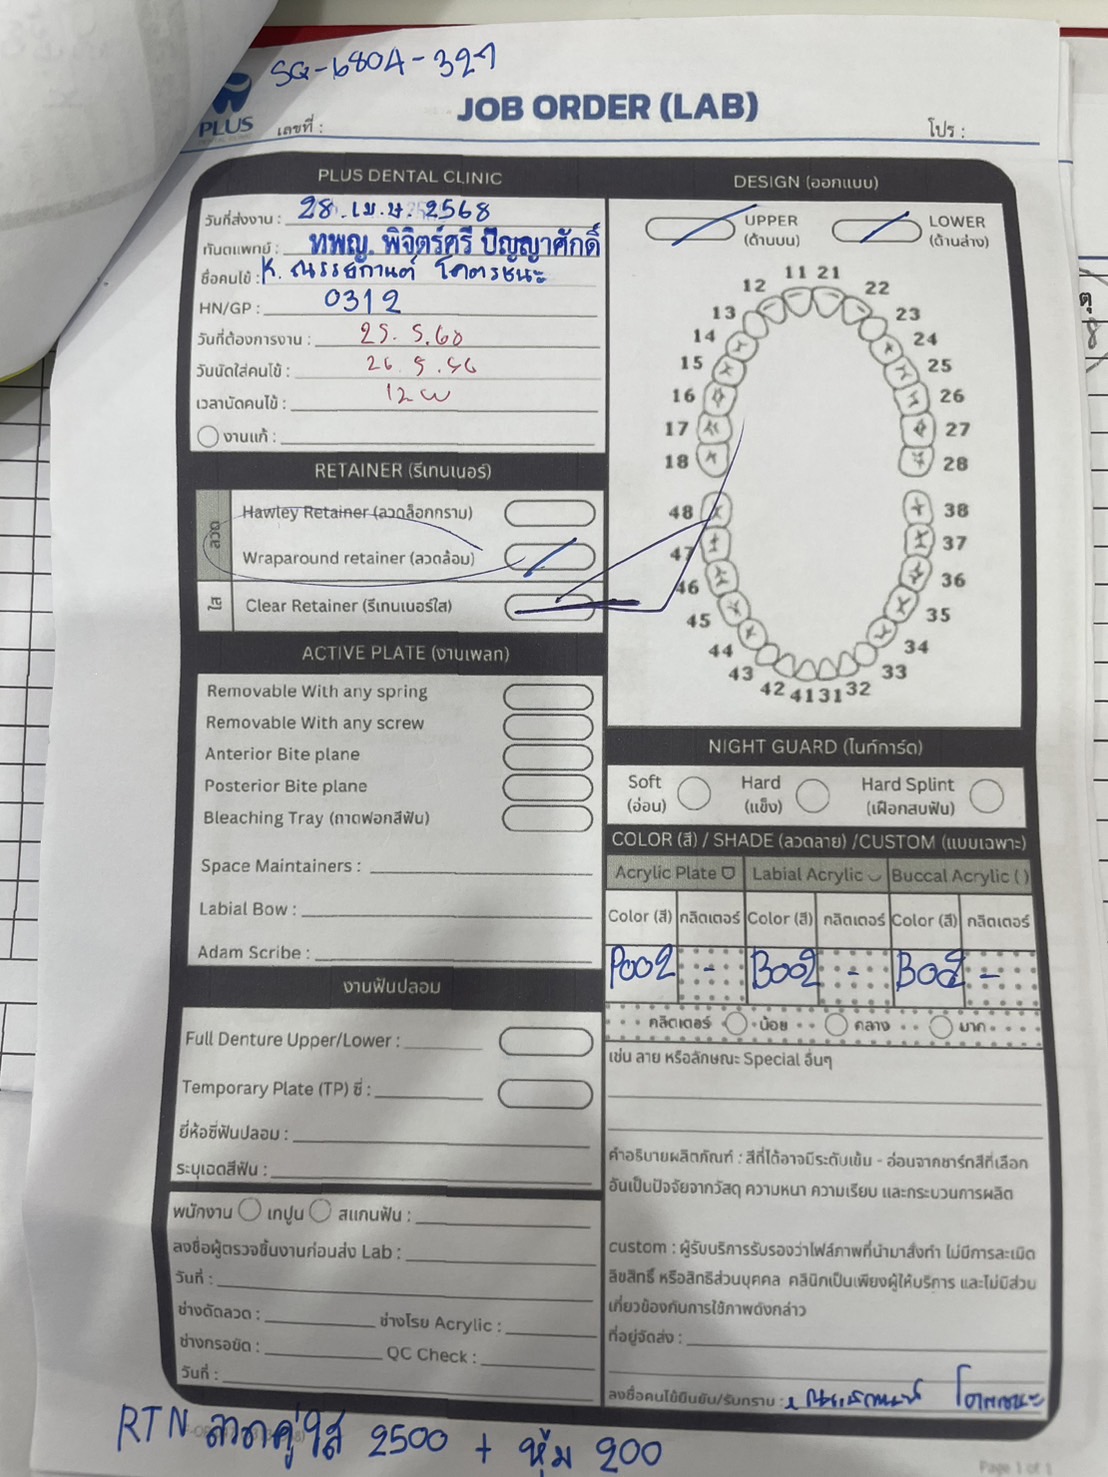 SG-6804-327
PLUS
JOB ORDER (LAB)
เลขที่ :
โปร :
PLUS DENTAL CLINIC
วันที่ส่งงาน : 28 เม.ษ. 2568
ทันตแพทย์ : ทพญ. พิจิตร์ศรี ปัญญาศักดิ์
ชื่อคนไข้ : K.
HN/GP : 0312
วันที่ต้องการงาน : 25. 5. 68
วันนัดใส่คนไข้ : 26. 5.
เวลานัดคนไข้ : 12
งานแก้ :
RETAINER (รีเทนเนอร์)
ลวด
Hawley Retainer (ลวดล็อกกราม)
Wraparound retainer (ลวดล้อม)
ใส
Clear Retainer (รีเทนเนอร์ใส)
ACTIVE PLATE (งานเพลท)
Removable With any spring
Removable With any screw
Anterior Bite plane
Posterior Bite plane
Bleaching Tray (ถาดฟอกสีฟัน)
Space Maintainers :
Labial Bow :
Adam Scribe :
งานฟันปลอม
Full Denture Upper/Lower :
Temporary Plate (TP) ซี่ :
ยี่ห้อซี่ฟันปลอม :
ระบุเฉดสีฟัน :
พนักงาน เทปูน สแกนฟัน :
ลงชื่อผู้ตรวจชิ้นงานก่อนส่ง Lab :
วันที่ :
ช่างดัดลวด : ช่างโรย Acrylic :
ช่างกรอขัด : QC Check :
วันที่ :
DESIGN (ออกแบบ)
UPPER (ด้านบน)
LOWER (ด้านล่าง)
11 21
12 22
13 23
14 24
15 25
16 26
17 27
18 28
48 38
47 37
46 36
45 35
44 34
43 33
42 41 31 32
NIGHT GUARD (ไนท์การ์ด)
Soft (อ่อน)
Hard (แข็ง)
Hard Splint (เฝือกสบฟัน)
COLOR (สี) / SHADE (ลวดลาย) /CUSTOM (แบบเฉพาะ)
Acrylic Plate Labial Acrylic Buccal Acrylic ( )
Color (สี) กลิตเตอร์ Color (สี) กลิตเตอร์ Color (สี) กลิตเตอร์
P002 - B002 - B002 -
กลิตเตอร์ น้อย กลาง มาก
เช่น ลาย หรือลักษณะ Special อื่นๆ
คำอธิบายผลิตภัณฑ์ : สีที่ได้อาจมีระดับเข้ม - อ่อนจากชาร์ทสีที่เลือก
อันเป็นปัจจัยจากวัสดุ ความหนา ความเรียบ และกระบวนการผลิต
custom : ผู้รับบริการรับรองว่าไฟล์ภาพที่นำมาสั่งทำ ไม่มีการละเมิด
ลิขสิทธิ์ หรือสิทธิส่วนบุคคล คลินิกเป็นเพียงผู้ให้บริการ และไม่มีส่วน
เกี่ยวข้องกับการใช้ภาพดังกล่าว
ที่อยู่จัดส่ง :
ลงชื่อคนไข้ยืนยัน/รับทราบ :
RTN ลวดคู่ใส 2500 + หุ้ม 200
Page 1 of 1